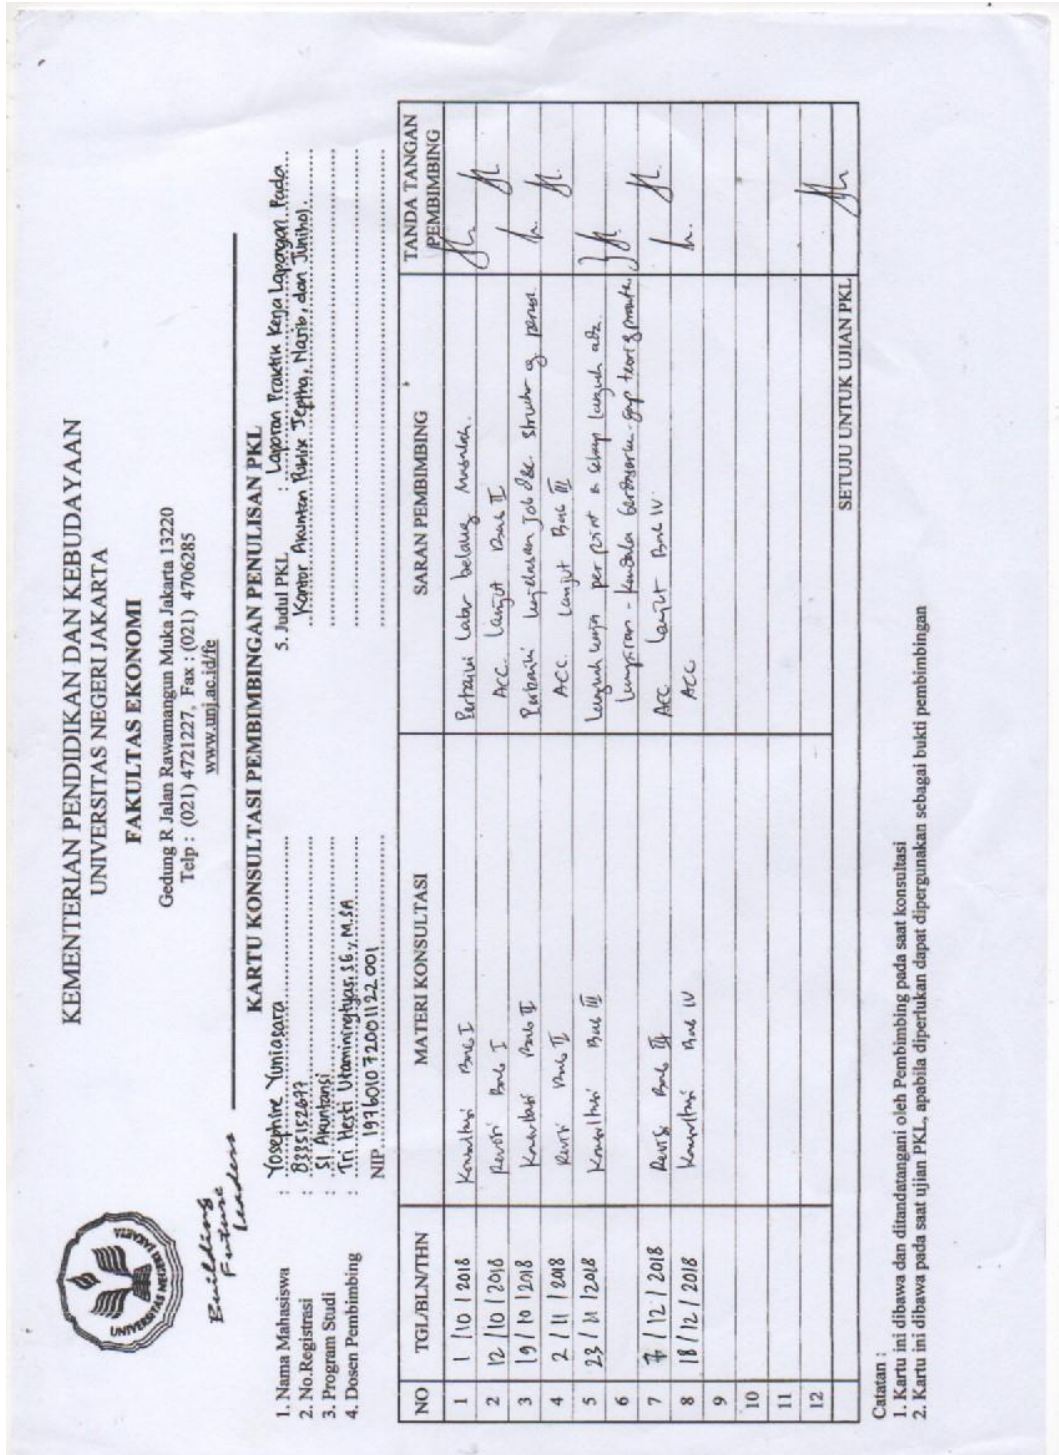 KEMENTERIAN PENDIDIKAN DAN KEBUDAYAAN
UNIVERSITAS NEGERI JAKARTA
FAKULTAS EKONOMI
Gedung R Jalan Rawamangun Muka Jakarta 13220
Telp : (021) 4721227, Fax : (021) 4706285
www.unj.ac.id/fe
UNIVERSITAS NEGERI JAKARTA
Building
Future
Leaders
KARTU KONSULTASI PEMBIMBINGAN PENULISAN PKL
1. Nama Mahasiswa : Yosephine Yuniasara
2. No.Registrasi : 8335152677
3. Program Studi : S1 Akuntansi
4. Dosen Pembimbing : Tri Hesti Utaminingtyas, SE., M.SA
NIP 197601072001122001
5. Judul PKL : Laporan Praktik Kerja Lapangan Pada
Kantor Akuntan Publik Jeptha, Nasib, dan Junihol.
NO TGL/BLN/THN MATERI KONSULTASI SARAN PEMBIMBING TANDA TANGAN PEMBIMBING
1 1/10/2018 Konsultasi Bab I Perbaiki latar belakang masalah.
2 12/10/2018 Revisi Bab I ACC. Lanjut Bab II
3 19/10/2018 Konsultasi Bab II Perbaiki penjelasan Job desc. struktur og
4 2/11/2018 Revisi Bab II ACC. Lanjut Bab III
5 23/11/2018 Konsultasi Bab III Langkah kerja per point & setiap langkah ada
6 Lampiran - Kendala berdasarkan gap teori & praktek
7 7/12/2018 Revisi Bab III ACC Lanjut Bab IV
8 18/12/2018 Konsultasi Bab IV ACC
9
10
11
12
SETUJU UNTUK UJIAN PKL
Catatan :
1. Kartu ini dibawa dan ditandatangani oleh Pembimbing pada saat konsultasi
2. Kartu ini dibawa pada saat ujian PKL, apabila diperlukan dapat dipergunakan sebagai bukti pembimbingan